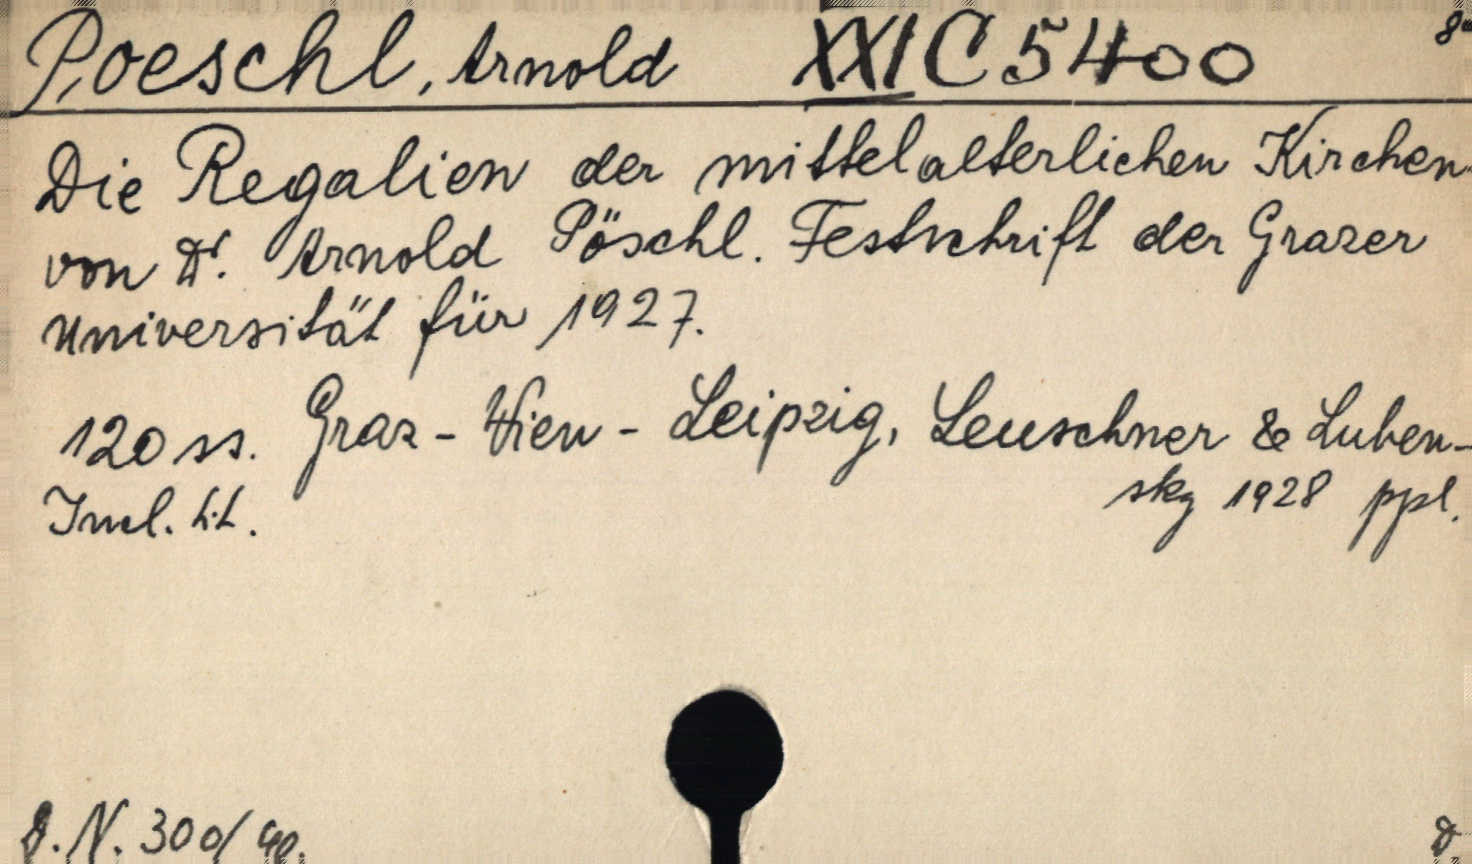 Poeschl, Arnold XXI C 5400 8°
Die Regalien der mittelalterlichen Kirchen
von Dr. Arnold Pöschl. Festschrift der Grazer
Universität für 1927.
120 ss. Graz - Wien - Leipzig, Leuschner & Luben-
sky 1928 ppl.
Incl. lit.
D. N. 300/40.
D